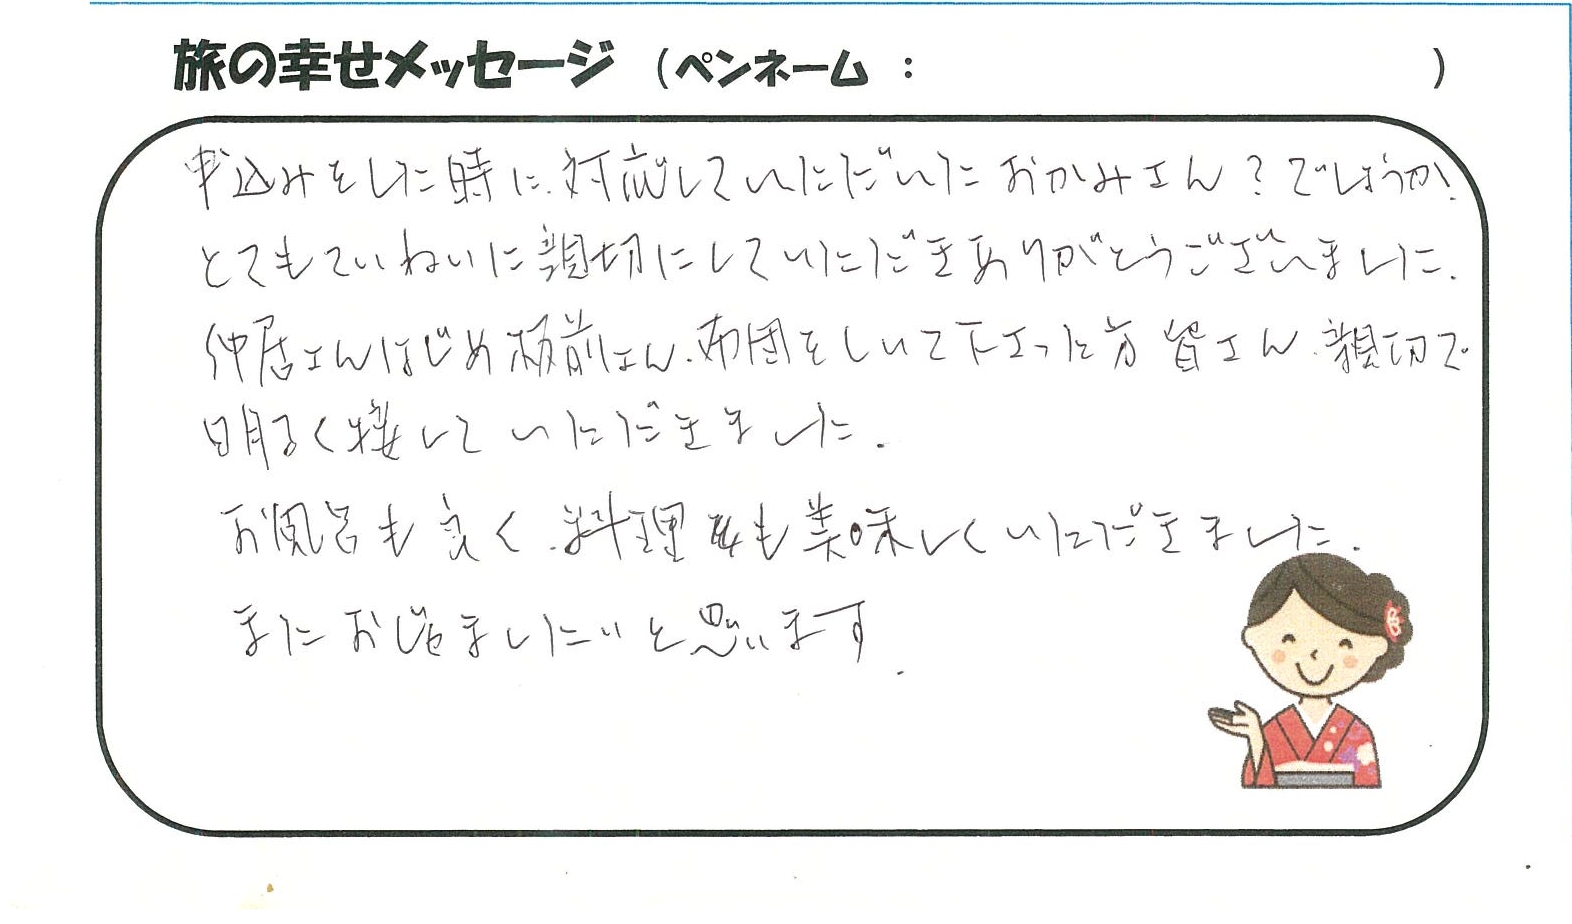 旅の幸せメッセージ (ペンネーム : )
申込みをした時に、対応していただいたおかみさん?でしょうか、
とてもていねいに親切にしていただきありがとうございました.
仲居さんはじめ板前さん、布団をしいて下さった方 皆さん、親切で
明るく接していただきました.
お風呂も良く、料理も美味しくいただきました.
またおじゃましたいと思います.